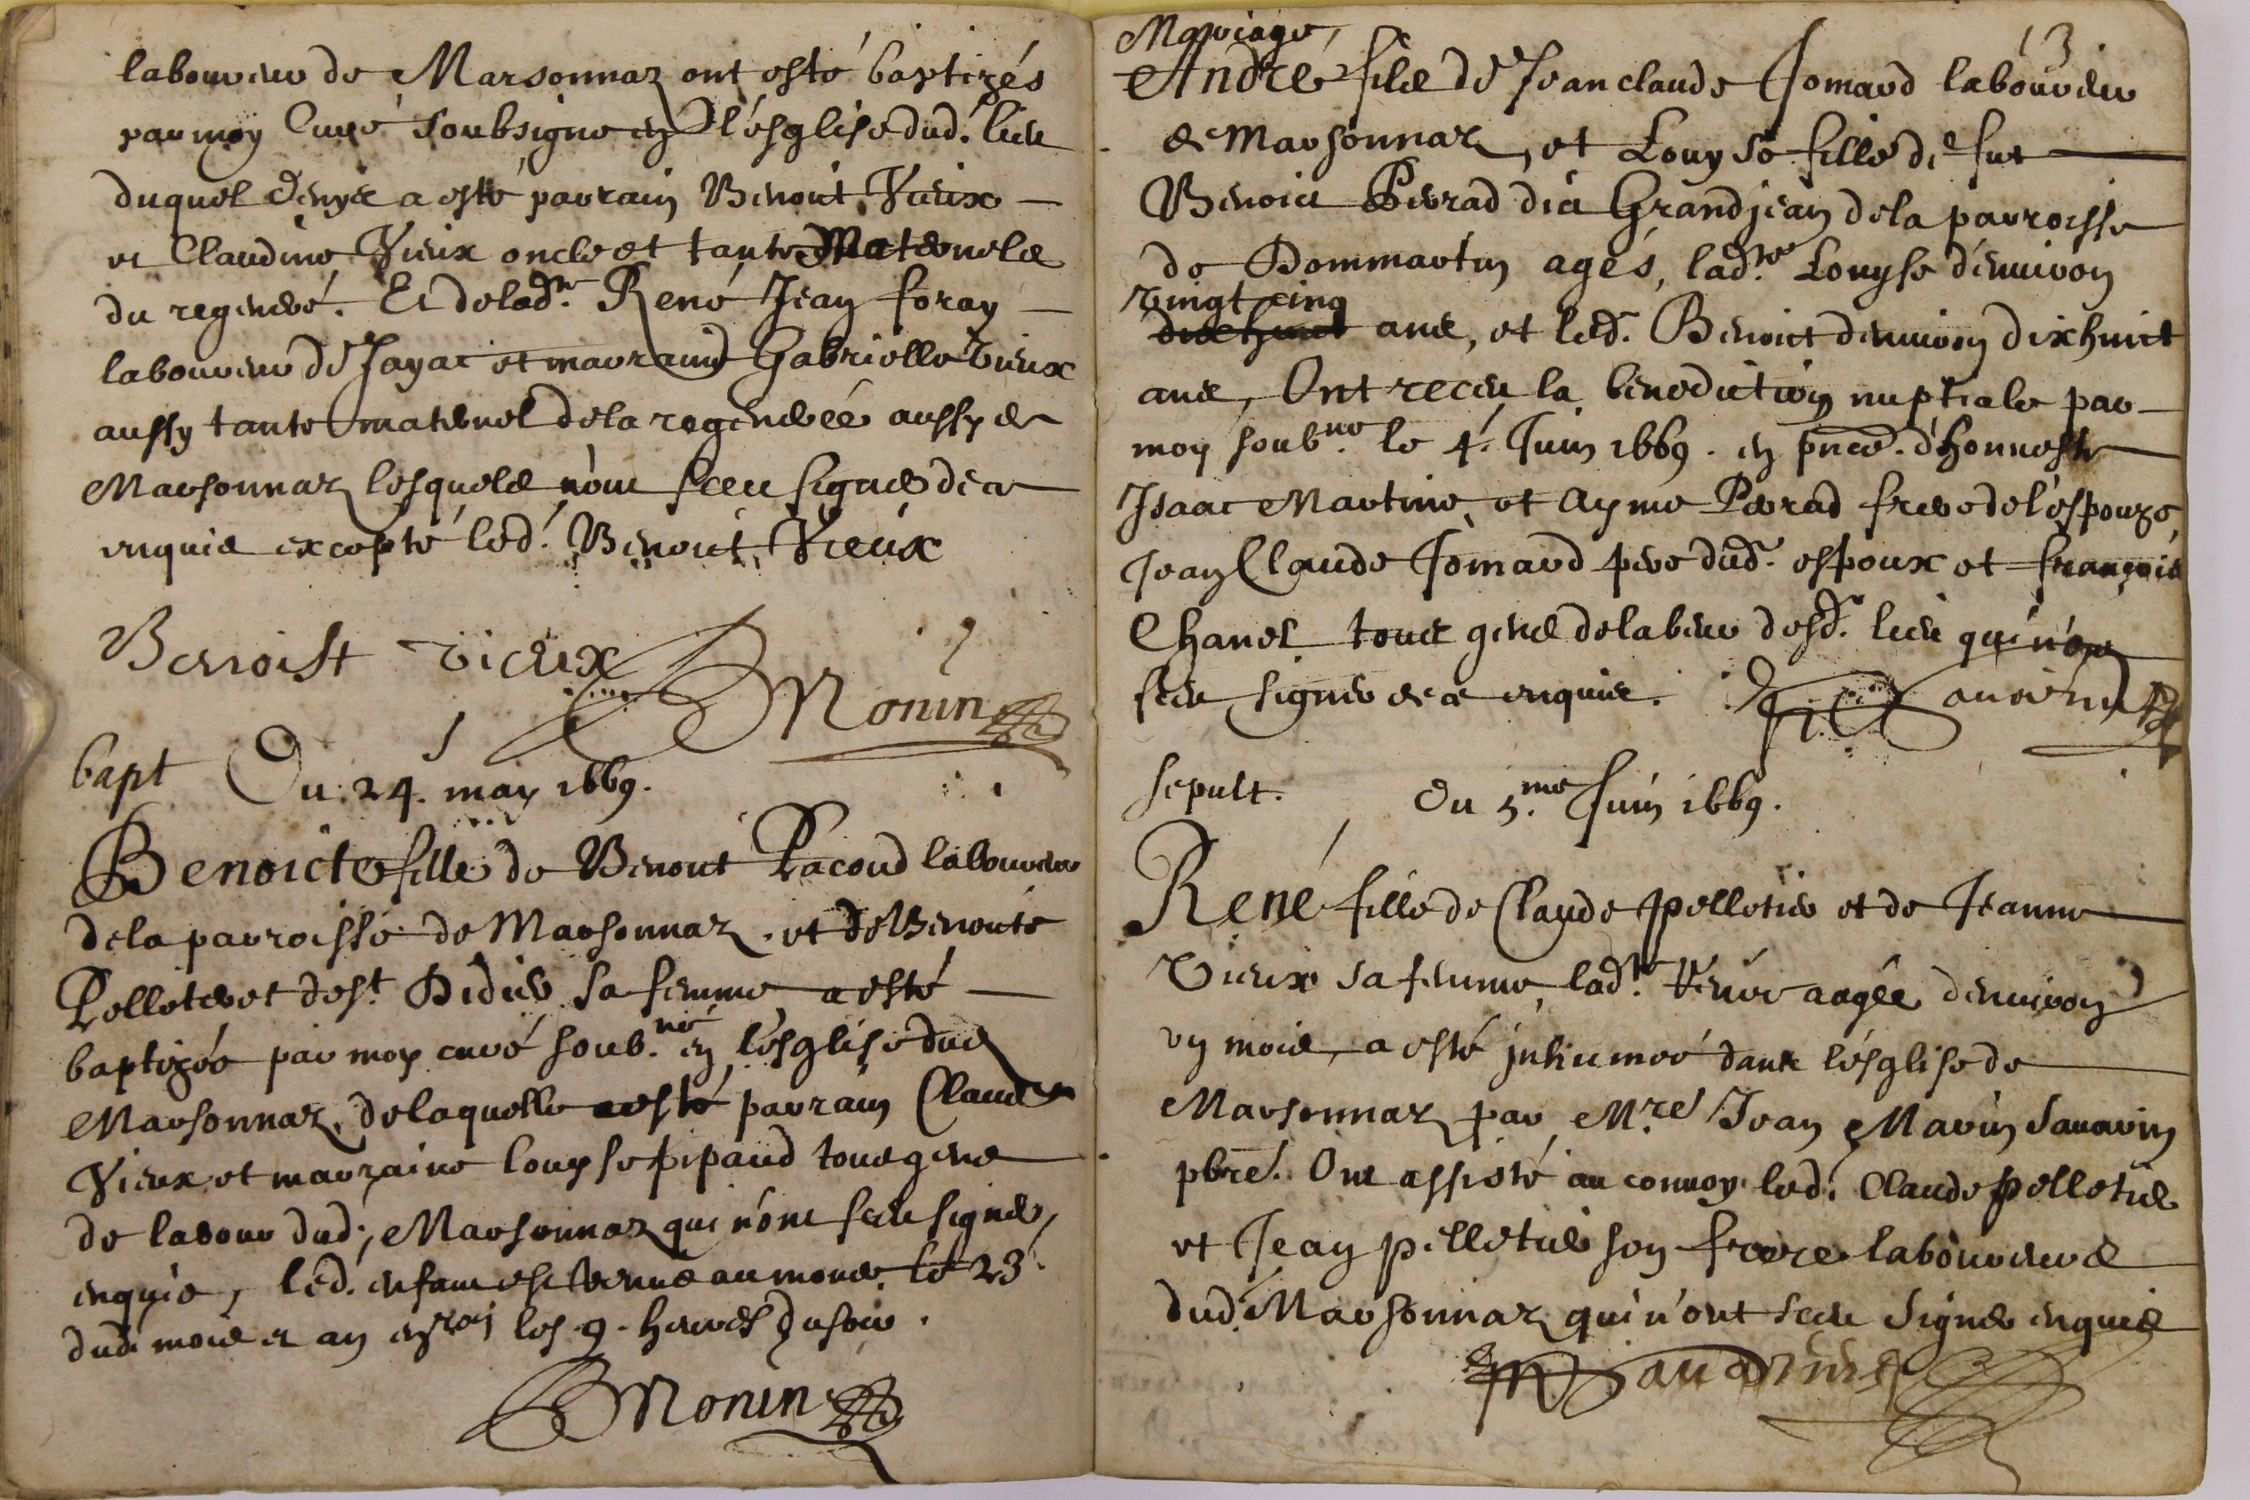 laboureur de Marsonnaz ont esté baptizés
par moy Curé soubsigne en l'esglise dud. lieu
duquel Denys a esté parrain Benoict Vieux
et Claudine Vieux oncle et tante Maternels
du regeneré. Et de lad.te René Jean foray
laboureur de Jayac et marraine Gabrielle Vieux
aussy tante maternel de la regenerée aussy de
Marsonnaz lesquels n'ont sceu signer de ce
enquis excepté led. Benoict Vieux
Benoist vieux
BMonin
bapt Du 24. may 1669.
Benoicte fille de Benoict Pacoud laboureur
de la parroisse de Marsonnaz et de Benoite
Pelleter et de st Didier sa femme a esté
baptizée par moy curé soub.né en l'esglise dud
Marsonnaz, de laquelle a esté parrain Claude
Vieux et marraine louyse pipaud tous gens
de labour dud. Marsonnaz qui n'ont sceu signer
enquis, led. enfant est venue au monde le 23
dud. mois et an les 9. heures du soir.
BMonin
13
Mariage
André filz de Jean claude Jomard laboureur
de Marsonnaz, et Louyse fille de fut
Benoict Perrad dict Grandjean de la parroisse
de Dommartin agés, lad.te Louyse d'enuiron
vingt cinq
dix huict ans, et led. Benoict denuiron dix huict
ans, Ont receu la benediction nuptiale par
moy soub.né le 4. Juin 1669. en pnce. d'honneste
Isaac Martine, et Ayme Perrad frere de l'espouze,
Jean Claude Jomard pere dud. espoux et françois
Chanel tous gens de labeur desd. lieu qui n'ont
sceu signer de ce enquis.
sepult. Du 5.me Juin 1669.
René fille de Claude pelletier et de Jeanne
Vieux sa femme, lad.te Renée aagée denuiron
un mois, a esté inhumée dans l'esglise de
Marsonnaz par M.re Jean Marin Sauarin
pbre. Ont assisté au conuoy led. Claude pelletier
et Jean pelletier son frere laboureurs
dud. Marsonnaz qui n'ont sceu signer enquis